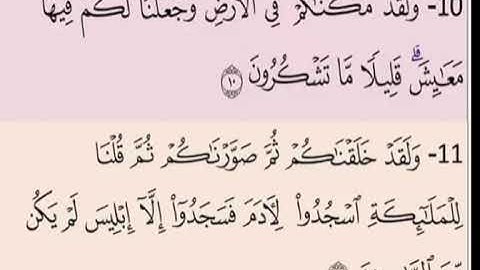 10- وَلَقَدْ مَكَّنَّاكُمْ فِي الْأَرْضِ وَجَعَلْنَا لَكُمْ فِيهَا
مَعَايِشَ ۗ قَلِيلًا مَّا تَشْكُرُونَ ١٠
11- وَلَقَدْ خَلَقْنَاكُمْ ثُمَّ صَوَّرْنَاكُمْ ثُمَّ قُلْنَا
لِلْمَلَائِكَةِ اسْجُدُوا لِآدَمَ فَسَجَدُوا إِلَّا إِبْلِيسَ لَمْ يَكُن